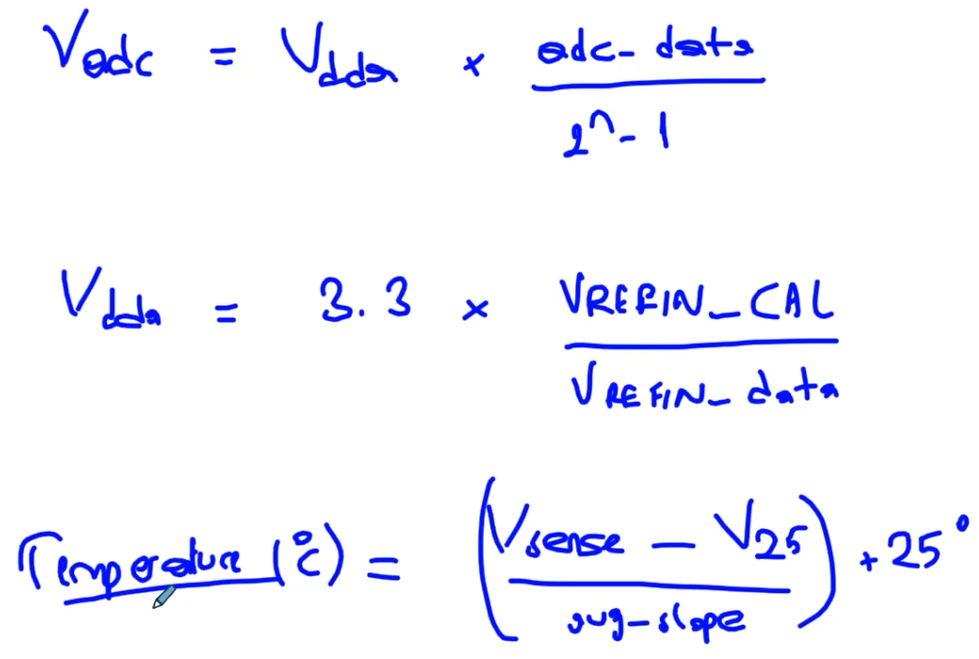 Vadc = Vdda × adc_data / 2^n - 1
Vdda = 3.3 × VREFIN_CAL / VREFIN_data
Temperature (°C) = (Vsense - V25 / avg_slope) + 25°